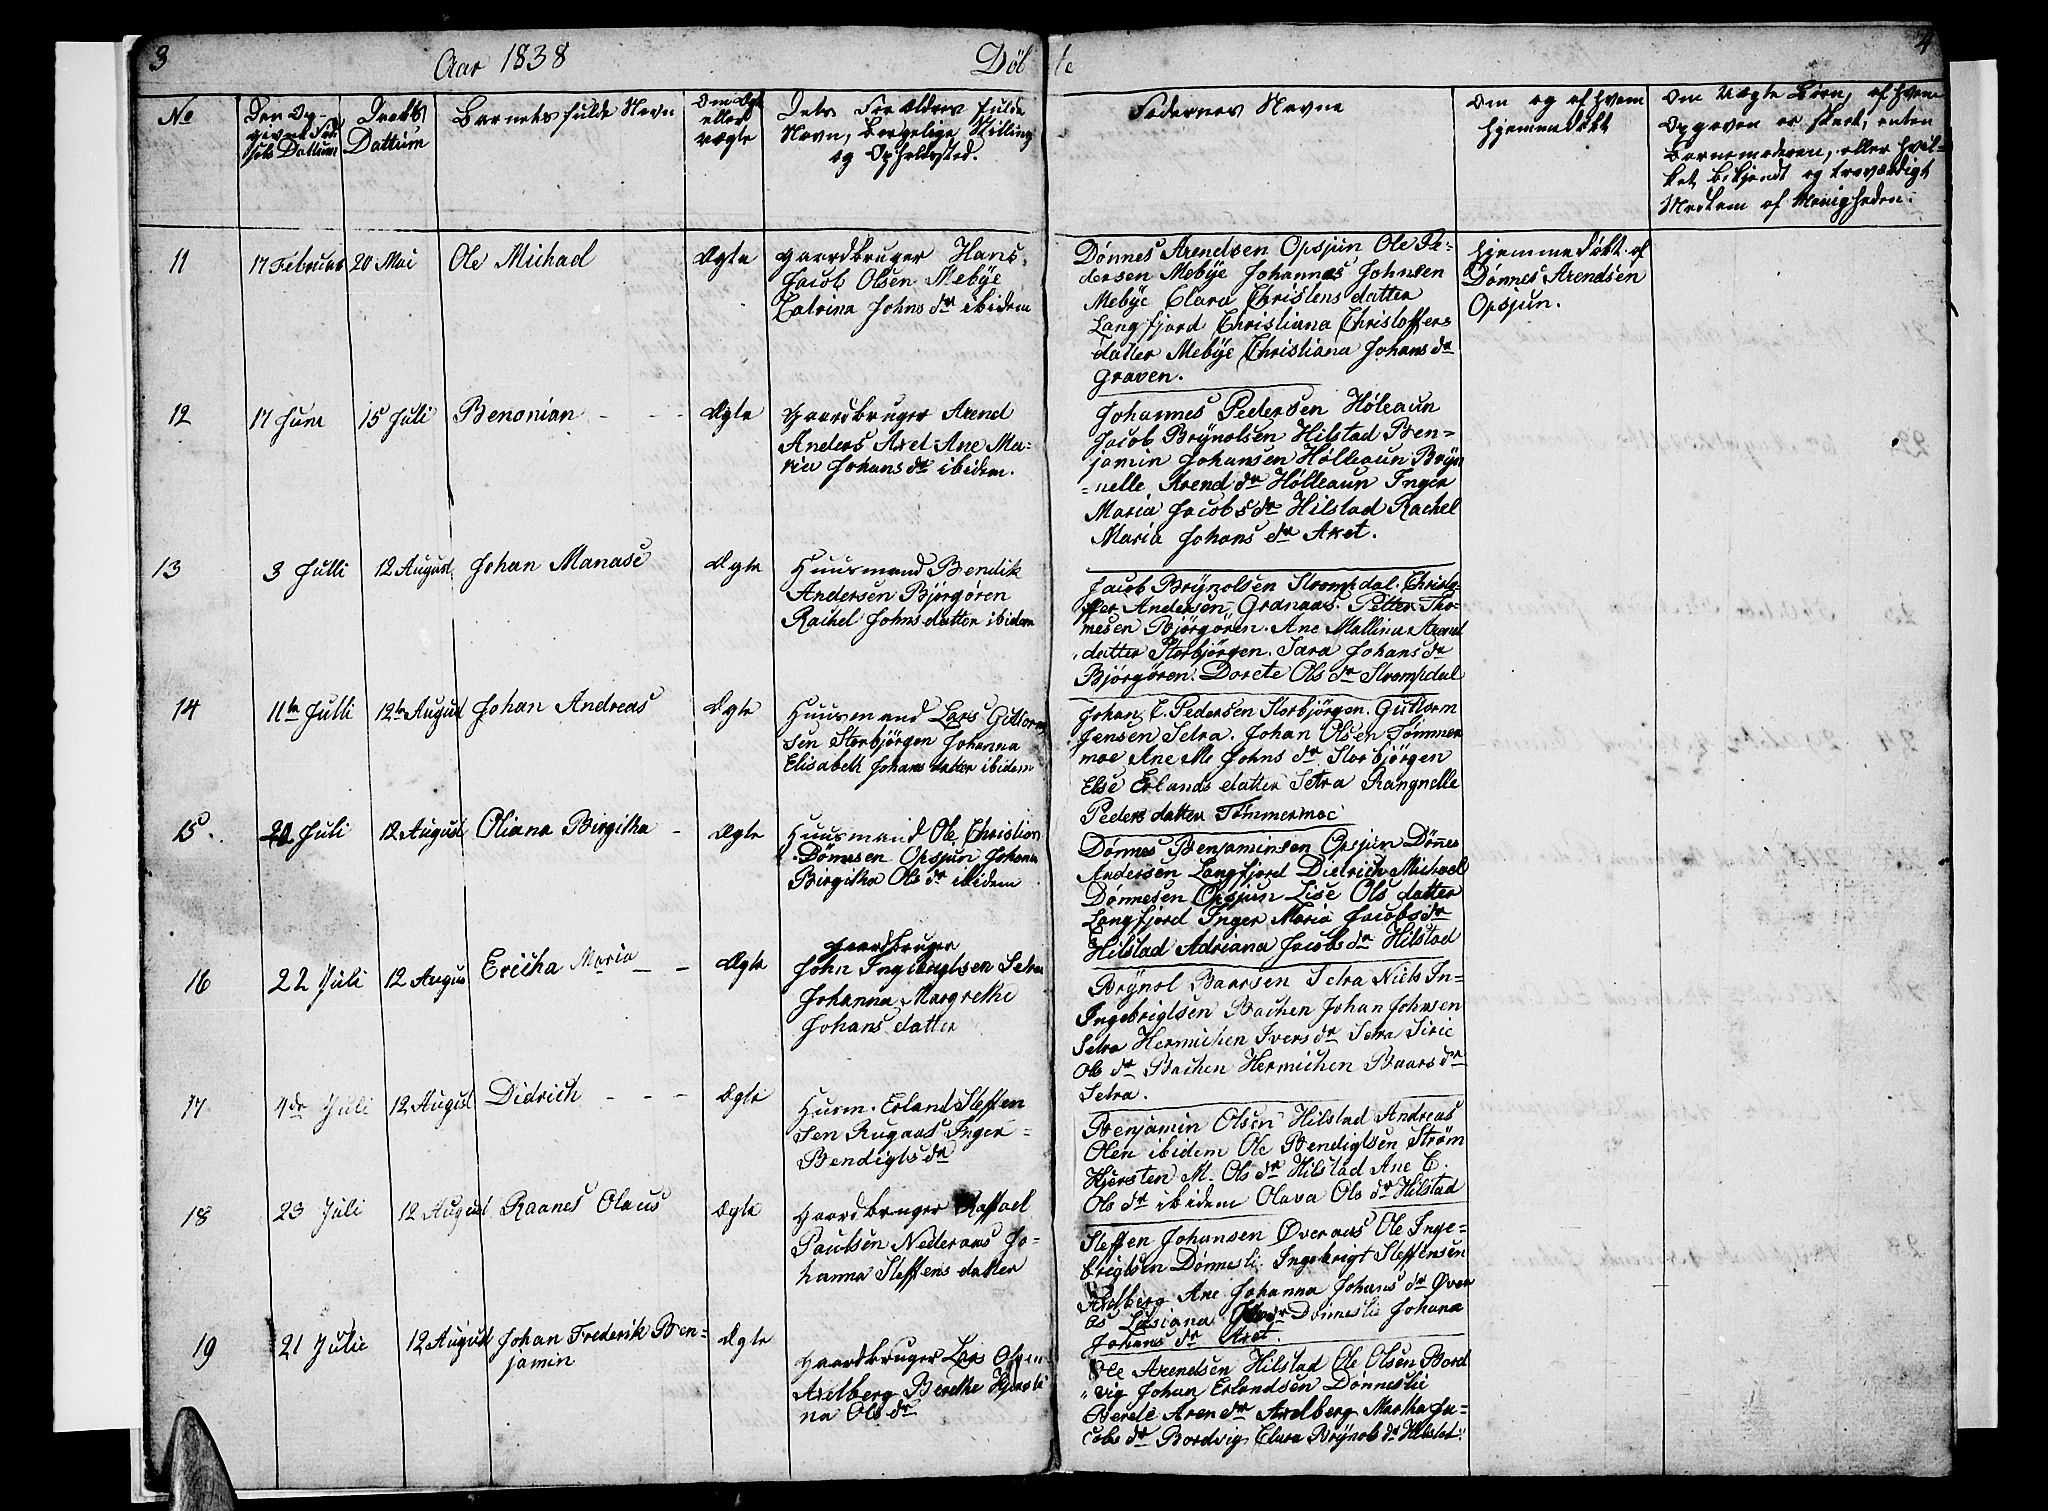 3
Aar 1838
Döbte
4
No
Den Op-
givne Föd-
sels Dattum
Daabs
Dattum
Barnets fulde Navn
Om Ægte
eller
uægte
Dets Forældres fulde
Navn, borgelige Stilling
og Opholdssted.
Faddernes Navne
Om og af hvem
hjemmedöbt
Om Uægte Börn, af hvem
Opgaven er skeet, enten
Barnemoderen, eller hvil-
ket bekjendt og troværdigt
Medlem af Menigheden.
11
17 Februar
20 Mai
Ole Michael
Ægte
Gaardbruger Hans
Jacob Olsen Mebÿe
Catrina Johns dr ibidem
Dønnes Arendsen Opsjun Ole Pe-
dersen Mebÿe Johannes Johnsen
Mebÿe Clara Christens datter
Langfjord Christiana Christoffers
datter Mebÿe Christiana Johans dr
Graven.
hjemmedöbt af
Dønnes Arendsen
Opsjun.
12
17 Juni
15 Juli
Benonian - - -
Ægte
Gaardbruger Arend
Anders Axet Ane Ma-
ria Johans dr ibidem.
Johannes Pedersen Höleaun
Jacob Brÿnolsen Hilstad Ben-
jamin Johansen Hölleaun Brÿn
=nelle Arend dr Hölleaun Inger
Maria Jacobs dr Hilstad Rachel
Maria Johans dr Axet.
13
3 Julli
12 August
Johan Manase
Ægte
Huusmand Bendik
Andersen Bjørgören
Rachel Johns datter ibidem
Jacob Brÿnolsen Strompdal. Christo-
ffer Andersen Granaas. Petter Tho-
mesen Bjørgören. Ane Mallina Arend
datter Storbjørgen. Sara Johans dr
Bjørgören. Dorete Ols dr Strompdal
14
11te Julli
12te August
Johan Andreas
Ægte
Huusmand Lars Guttorm
sen Storbjørgen Johanna
Elisabeth Johans datter ibidem
Johan C. Pedersen Storbjørgen. Guttorm
Jensen Setra. Johan Olsen Tømmer
moe Ane M. Johns dr Storbjørgen
Else Erlands datter Setra Rangnelle
Peders datter Tømmermoe
15.
20 Juli
12 August
Oliana Birgitha -
Ægte
Huusmand Ole Christian
Dönnesen Opsjun Johanna
Birgitha Ols dr ibidem
Dønnes Benjaminsen Opsjun Dønnes
Andersen Langfjord Diedrich Michael
Dønnesen Opsjun Lise Ols datter
Langfjord Inger Maria Jacobs dr
Hilstad Adriana Jacobs dr Hilstad
16
22 Juli
12 Augus
Ericha Maria - -
Ægte
Gaardbruger
John Ingebrigtsen Setra
Johanna Margrethe
Johans datter
Brÿnol Baarsen Setra Niels In-
Ingebrigtsen Bachen Johan Johnsen
Setra Hermichen Ivers dr Setra Sirie
Ols dr Bachen Hermichen Baars dr
Setra.
17
4de Juli
12 August
Didrich - - -
Ægte
Huusm. Erland Steffen
sen Rugaas Inger
Bendigts dr
Benjamin Olsen Hilstad Andreas
Olsen ibidem Ole Bendigtsen Strøm
Kjersten M. Ols dr Hilstad Ane C.
Ols dr ibidem Olava Ols dr Hilstad
18
23 Juli
12 August
Raanes Olaus
Ægte
Gaardbruger Raffael
Paulsen Nederaas Jo-
hanna Steffens datter
Steffen Johansen Øveraas Ole Inge-
brigtsen Dønneslie Ingebrigt Steffensen
Axelberg Ane Johanna Johans dr Øver
as Dønneslie Johana
Johans dr Axet.
19
21 Julie
12 August
Johan Frederik Ben-
jamin
Ægte
Gaardbruger Lars Olsen
Axelberg Berethe Kjersti
na Ols dr
Ole Arendsen Hilstad Ole Olsen Bord
vig Johan Erlandsen Dønneslie
Berete Aren dr Axelberg Martha Ja-
cobs dr Bordvig Clara Brÿnols dr Hilstad